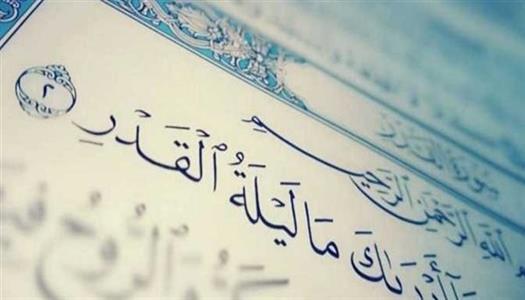 سورة القدر
ٱللَّهِ ٱلرَّحْمَٰنِ ٱلرَّحِيمِ
أَدْرَىٰكَ مَا لَيْلَةُ ٱلْقَدْرِ ٢
وَٱلرُّوحُ